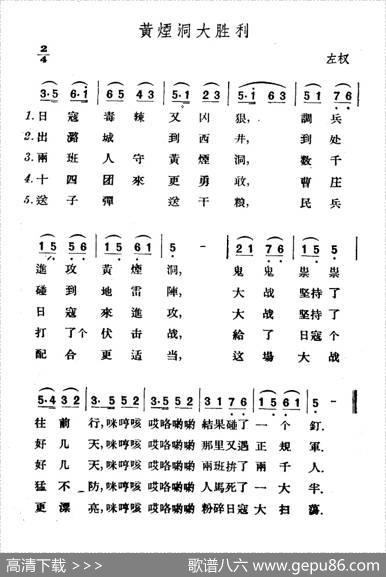 黃煙洞大胜利
2/4
左权
3·5 6·1 65 43 5·1 63 51 76
1. 日寇毒辣又凶狠, 調兵
2. 出潞城到西井, 到处
3. 兩班人守黃煙洞, 数千
4. 十四团來更勇敢, 曹庄
5. 送子彈送干粮, 民兵
15 56 16 51 5 - 21 76 15 61
進攻黃煙洞, 鬼鬼祟祟
碰到地雷陣, 大战坚持了
日寇來進攻, 大战坚持了
打了个伏击战, 給了日寇个
配合更适当, 这場大战
5·43 32 3·5 52 3·5 52 3 3 2 1 2 1 5 6 1 5 -
往前行, 咪哼咳 哎咯喲喲 結果碰了一个釘.
好几天, 咪哼咳 哎咯喲喲 那里又遇正規軍.
好几天, 咪哼咳 哎咯喲喲 兩班拚了兩千人.
猛不防, 咪哼咳 哎咯喲喲 人馬死了一大半.
更漂亮, 咪哼咳 哎咯喲喲 粉碎日寇大扫蕩.
高清下载 > >>
歌谱八六 www.gepu86.com